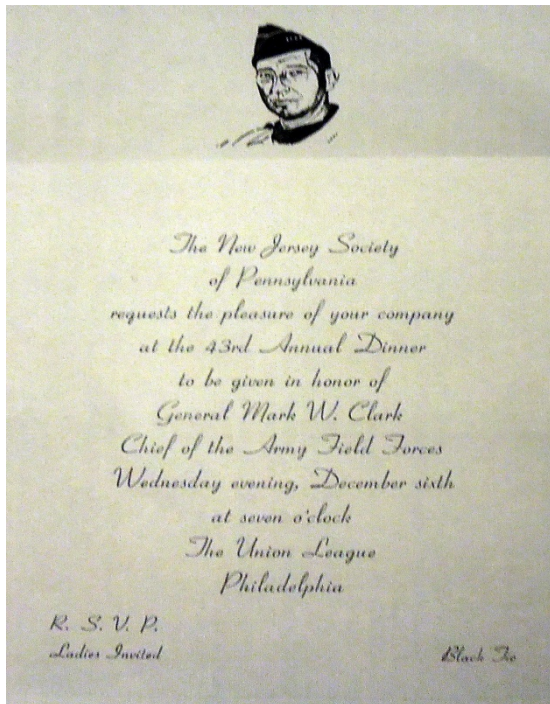 The New Jersey Society
of Pennsylvania
requests the pleasure of your company
at the 43rd Annual Dinner
to be given in honor of
General Mark W. Clark
Chief of the Army Field Forces
Wednesday evening, December sixth
at seven o'clock
The Union League
Philadelphia
R. S. V. P.
Ladies Invited
Black Tie